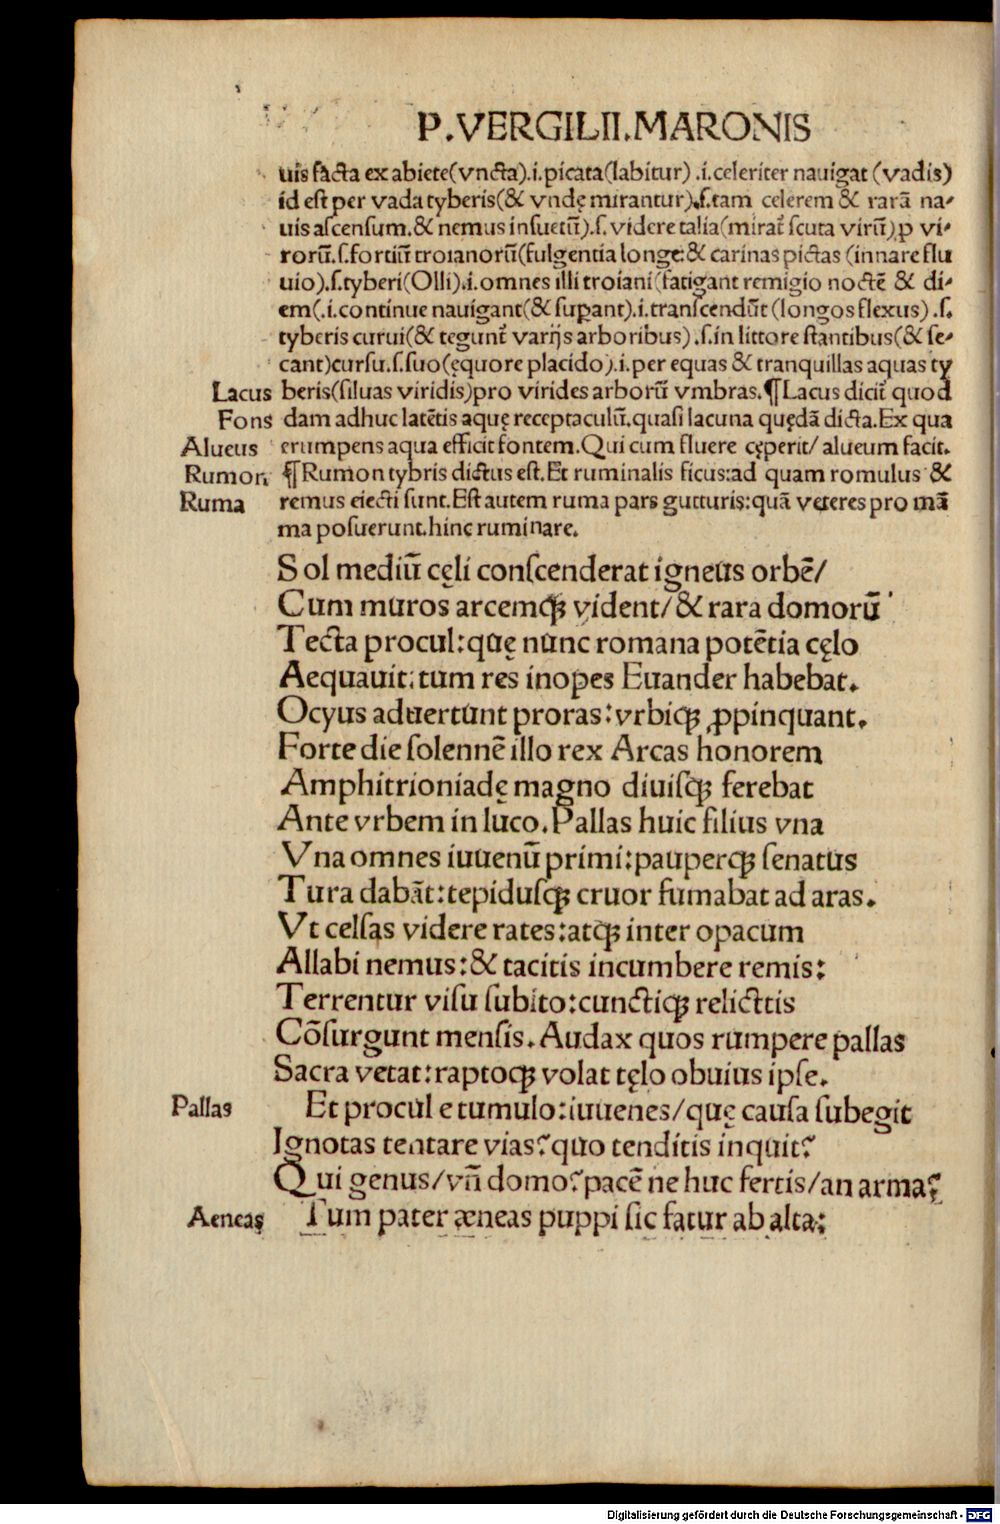 P.VERGILII.MARONIS
uis facta ex abiete(vncta).i.picata(labitur) .i.celeriter nauigat (vadis)
id est per vada tyberis(& vndę mirantur).ſ.tam celerem & rarā na-
uis aſcenſum.& nemus inſuetū).ſ. videre talia(mirat᷑ ſcuta virū).ꝑ vi-
rorū.ſ.fortiū troianorū(fulgentia longe:& carinas pictas (innare flu
uio).ſ.tyberi(Olli).i.omnes illi troiani(fatigant remigio noctē & di-
em(.i.continue nauigant(& ſuꝑant).i.tranſcendūt (longos flexus) .ſ.
tyberis curui(& tegunt᷑ varijs arboribus) .ſ.in littore ſtantibus(& ſe-
cant)curſu.ſ.ſuo(ęquore placido).i.per equas & tranquillas aquas ty
Lacus beris(ſiluas viridis)pro virides arborū vmbras.¶Lacus dicit᷑ quod
Fons dam adhuc latētis aquę receptaculū.quaſi lacuna quędā dicta.Ex qua
Alueus erumpens aqua efficit fontem.Qui cum fluere cęperit/ alueum facit.
Rumon ¶Rumon tybris dictus eſt.Et ruminalis ficus:ad quam romulus &
Ruma remus eiecti ſunt.Eſt autem ruma pars gutturis:quā veteres pro mā
ma poſuerunt.hinc ruminare.
Sol mediū cęli conſcenderat igneus orbē/
Cum muros arcemqꝫ vident/& rara domorū
Tecta procul:quę nunc romana potētia cęlo
Aequauit:tum res inopes Euander habebat.
Ocyus aduertunt proras:vrbiqꝫ ꝓpinquant.
Forte die ſolennē illo rex Arcas honorem
Amphitrioniadę magno diuiſqꝫ ferebat
Ante vrbem in luco.Pallas huic filius vna
Vna omnes iuuenū primi:pauperqꝫ ſenatus
Tura dabāt:tepiduſqꝫ cruor fumabat ad aras.
Vt celſas videre rates:atqꝫ inter opacum
Allabi nemus:& tacitis incumbere remis:
Terrentur viſu ſubito:cunctiqꝫ relicttis
Cōſurgunt menſis.Audax quos rumpere pallas
Sacra vetat:raptoqꝫ volat tęlo obuius ipſe.
Pallas Et procul e tumulo:iuuenes/quę cauſa ſubegit
Ignotas tentare vias?quo tenditis inquit?
Qui genus/vñ domo?pacē ne huc fertis/an arma?
Aeneas Tum pater æneas puppi ſic fatur ab alta:
Digitalisierung gefördert durch die Deutsche Forschungsgemeinschaft - DFG